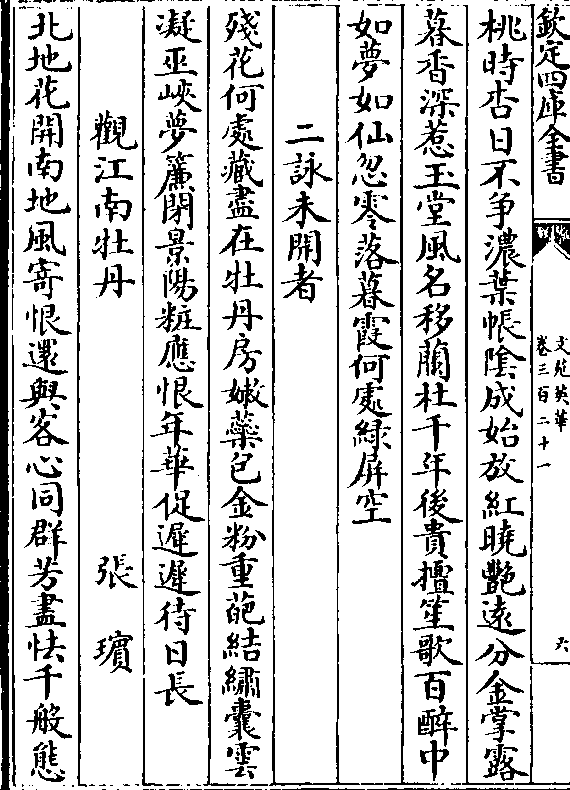 欽定四庫全書
文苑英華
卷三百二十一
六
桃時杏日不争濃葉帳陰成始放紅曉艷遠分金掌露
暮香深惹玉堂風名移蘭杜千年後貴擅笙歌百醉中
如夢如仙忽零落暮霞何處緑屏空
二詠未開者
殘花何處藏盡在牡丹房嫩蘂包金粉重葩結繡囊雲
凝巫峽夢簾閉景陽粧應恨年華促遲遲待日長
觀江南牡丹
張𤩴
北地花開南地風寄恨還與客心同群芳盡怯千般態